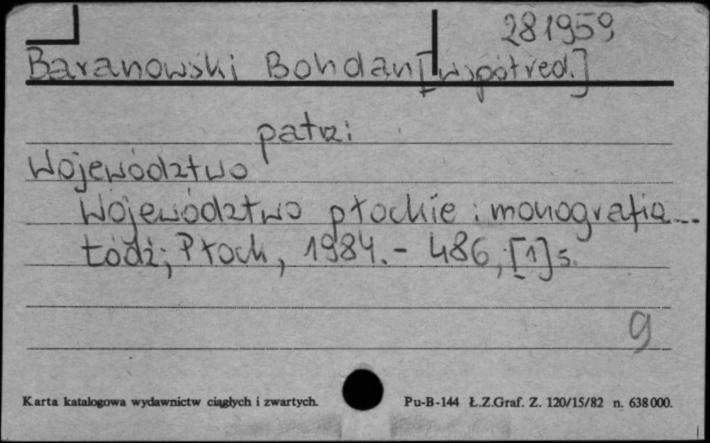 281959
Baranowski Bohdan [współred.]
patrz:
Województwo
Województwo płockie : monografia...
Łódź; Płock, 1984.- 486, [1] s.
9
Karta katalogowa wydawnictw ciągłych i zwartych. Pu-B-144 Ł.Z.Graf. Z. 120/15/82 n. 638000.